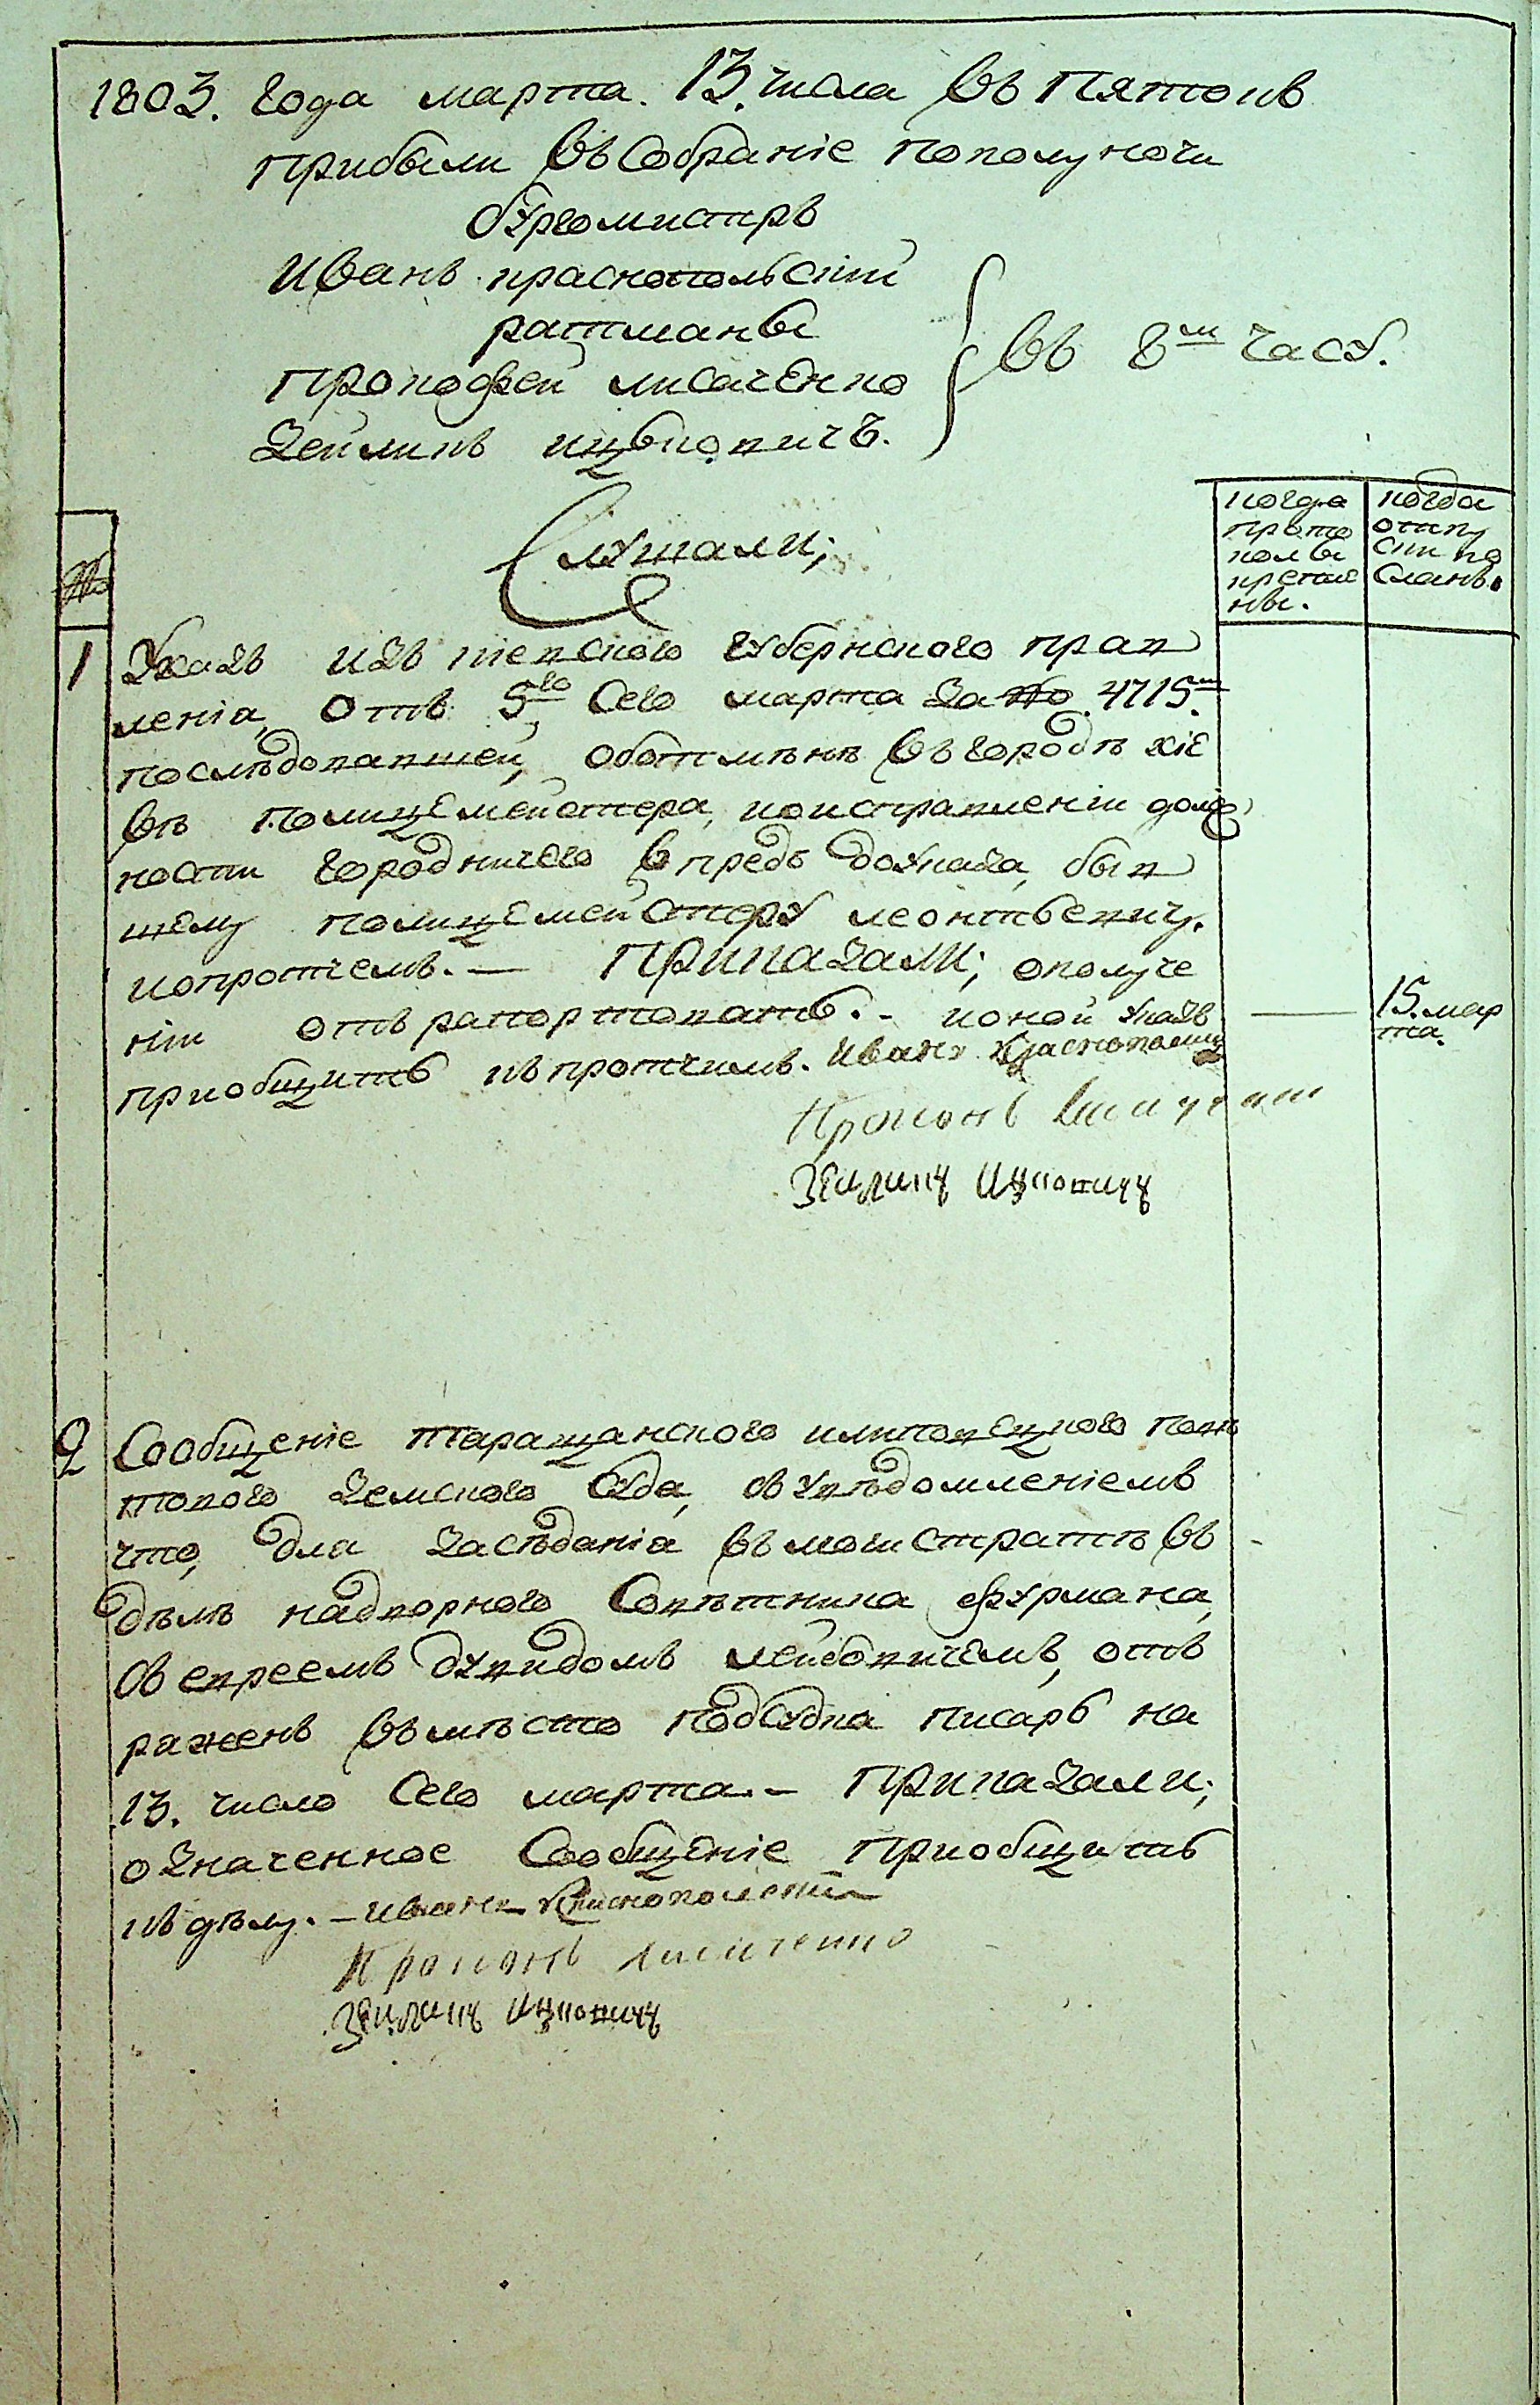 1803. Года марта. 13. числа въ Пятокъ
Прибыли въ Собраніе пополуночи
бургомистръ
Иванъ краснопольскій
ратманы
Прокофей лисаченко
Зеиликъ ицковичъ.
въ 8м часу.
Слушали;
№
когда прото колы крепле ны.
когда отпу ски по сланы.
1
Указъ изъ кіевского губернского прав
леніа, отъ 5го Сего марта за № 4715м
последовавшей, оботмѣнѣ въ городѣ кіе
вѣ Полицемейстера, иоисправленіи долж
ности городничего впредь доуказа, быв
шему полицемейстеру леонтьевичу.
ипротчемъ. — Приказали; ополуче
ніи отрапортовать. - иокой указъ
пріобщить къпротчимъ. Иванъ Краснополский
15. мар
та.
Зеиликъ Ицковичъ
2
Сообщеніе таращанского илиповецкого повѣ
тового земского Суда, сувѣдомленіемъ
что, для засѣданіа въ магистратѣ въ
дѣлѣ надворного Совѣтника фурмана,
съ евреемъ дувидомъ лейбовичемъ, отъ
ряженъ въмѣсто подсудка писарь на
13. число Сего марта. - Приказали;
означенное Сообщеніе Пріобщить
къ дѣлу. - иванъ Краснополский
лисиченко
Зеиликъ Ицковичъ